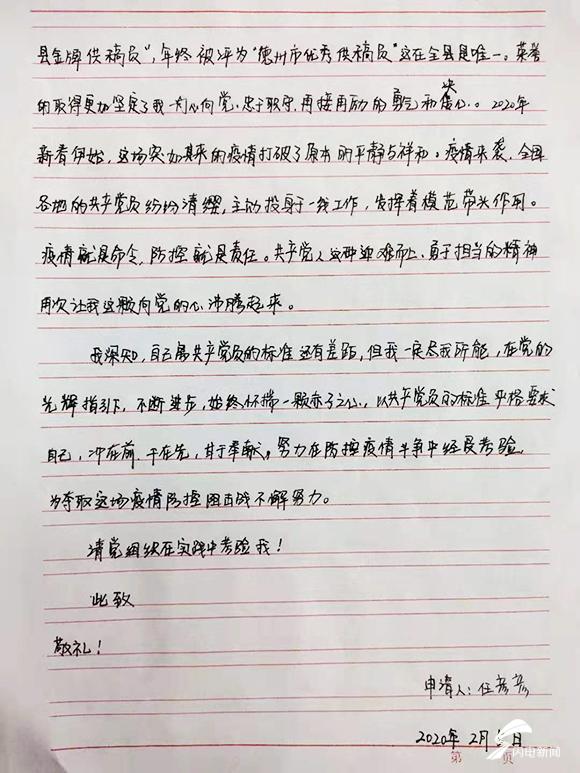 县金牌供稿员”，年终被评为“德州市优秀供稿员”这在全县是唯一。荣誉
的取得更加坚定了我一心向党、忠于职守，再接再励的勇气和决心。2020年
新春伊始，这场突如其来的疫情打破了原本的平静与祥和。疫情来袭，全国
各地的共产党员纷纷请缨，主动投身于一线工作，发挥着模范带头作用。
疫情就是命令，防控就是责任。共产党人这种迎难而上、勇于担当的精神
再次让我这颗向党的心沸腾起来。
我深知，自己离共产党员的标准还有差距，但我一定尽我所能，在党的
光辉指引下，不断进步，始终怀揣一颗赤子之心，以共产党员的标准严格要求
自己，冲在前，干在先，甘于奉献。努力在防控疫情斗争中经受考验，
为夺取这场疫情防控阻击战不懈努力。
请党组织在实践中考验我！
此致
敬礼！
申请人：任彦彦
2020年2月 日
第 页
闪电新闻